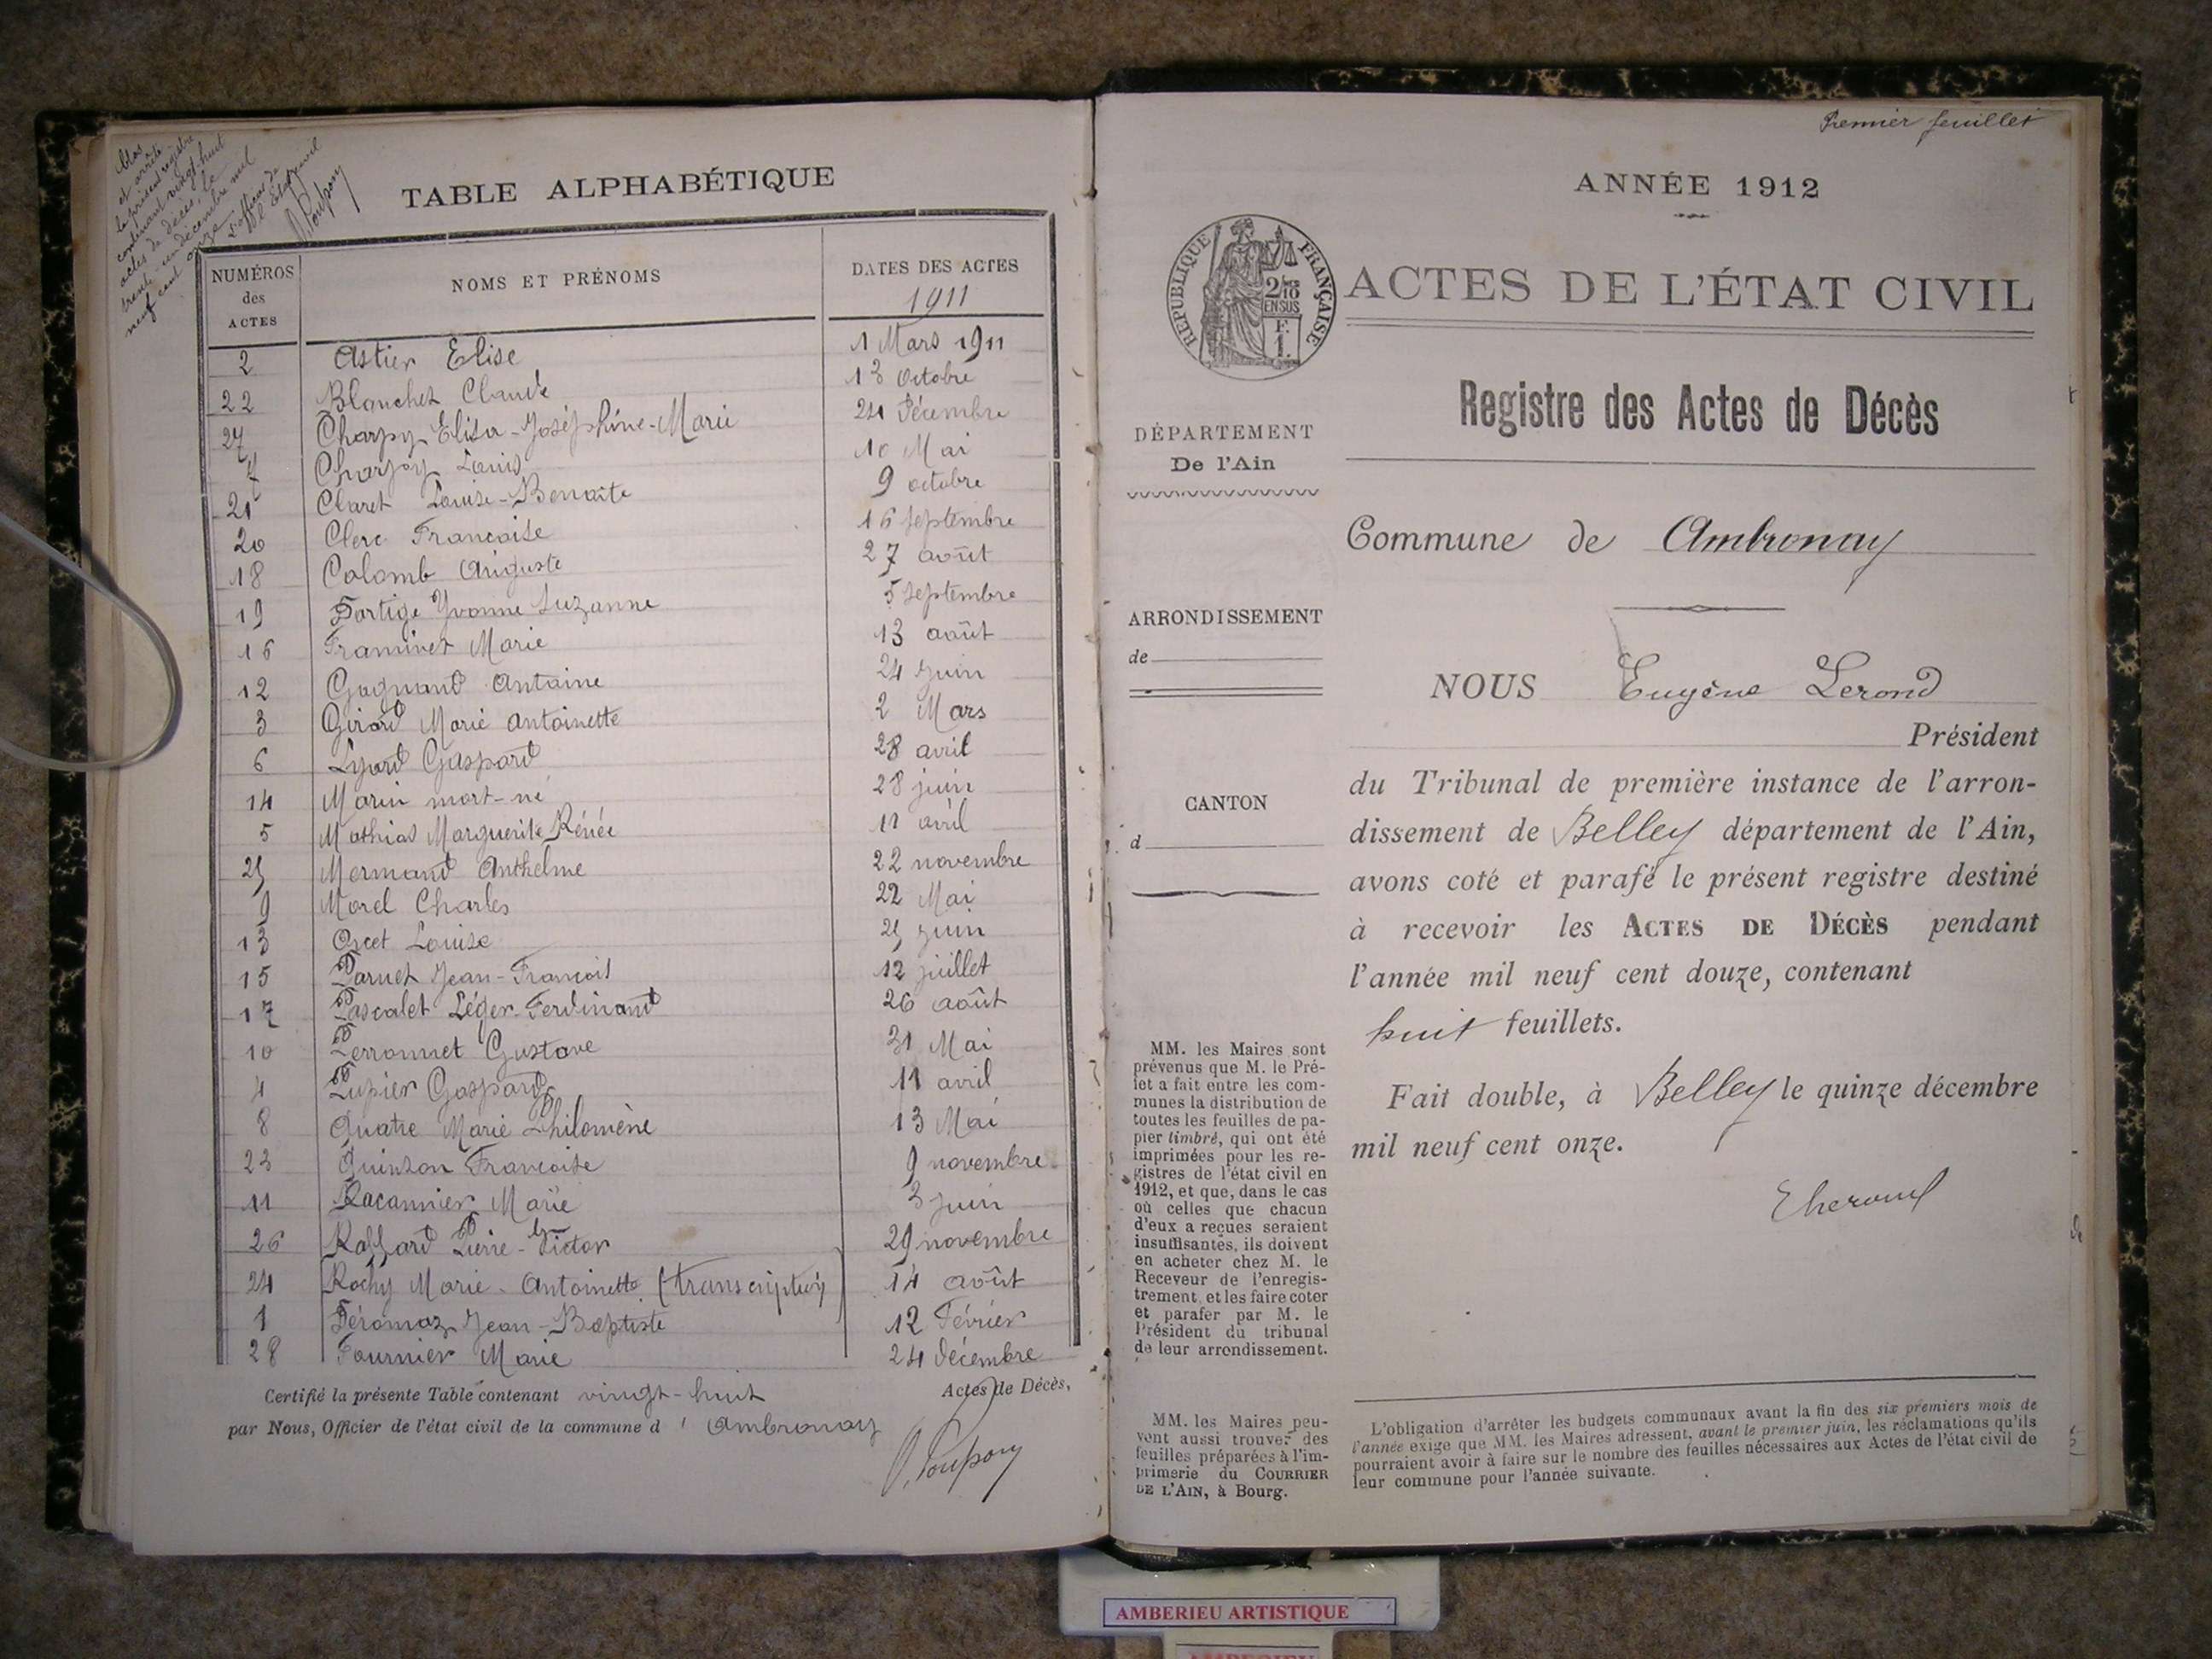 Clos
et arrêté
le présent registre
contenant vingt-huit
actes de décès, le
trente-un décembre mil
neuf cent onze
L'officier de
l'Etat civil
TABLE ALPHABÉTIQUE
NUMÉROS des ACTES NOMS ET PRÉNOMS DATES DES ACTES 1911
2 Astier Elise 1 Mars 1911
22 Blanchet Claude 13 Octobre
27 Charpy Elisa-Joséphine-Marie 24 Décembre
7 Charpy Louis 10 Mai
21 Claret Louise-Benoîte 9 octobre
20 Clerc Francoise 16 septembre
18 Colomb Auguste 27 août
19 Fortige Yvonne Suzanne 5 septembre
16 Framinet Marie 13 août
12 Gagnand Antoine 24 Juin
3 Girard Marie Antoinette 2 Mars
6 Lyard Gaspard 28 avril
14 Marin mort-né 28 juin
5 Mathias Marguerite Rénée 11 avril
25 Mermand Anthelme 22 novembre
9 Morel Charles 22 Mai
13 Orcet Louise 25 juin
15 Parnet Jean-François 12 juillet
17 Pascalet Léger-Ferdinand 26 août
10 Perronnet Gustave 31 Mai
4 Pupier Gaspard 11 avril
8 Quatre Marie Philomène 13 Mai
23 Quinson Francoise 9 novembre
11 Racannier Marie 3 juin
26 Raffard Pierre-Victor 29 novembre
24 Rochy Marie-Antoinette (transcription) 14 août
1 Féromaz Jean-Baptiste 12 Février
28 Fournier Marie 24 décembre
Certifié la présente Table contenant vingt-huit Actes de Décès,
par Nous, Officier de l'état civil de la commune d'Ambronay
Premier feuillet
ANNÉE 1912
RÉPUBLIQUE FRANÇAISE
2/10 EN SUS
F. 1.
ACTES DE L'ÉTAT CIVIL
Registre des Actes de Décès
DÉPARTEMENT
De l'Ain
Commune de Ambronay
ARRONDISSEMENT
de
CANTON
d
NOUS Eugène Lerond
Président
du Tribunal de première instance de l'arron-
dissement de Belley département de l'Ain,
avons coté et parafé le présent registre destiné
à recevoir les ACTES DE DÉCÈS pendant
l'année mil neuf cent douze, contenant
huit feuillets.
Fait double, à Belley le quinze décembre
mil neuf cent onze.
MM. les Maires sont
prévenus que M. le Pré-
fet a fait entre les com-
munes la distribution de
toutes les feuilles de pa-
pier timbré, qui ont été
imprimées pour les re-
gistres de l'état civil en
1912, et que, dans le cas
où celles que chacun
d'eux a reçues seraient
insuffisantes, ils doivent
en acheter chez M. le
Receveur de l'enregis-
trement, et les faire coter
et parafer par M. le
Président du tribunal
de leur arrondissement.
MM. les Maires peu-
vent aussi trouver des
feuilles préparées à l'im-
primerie du COURRIER
DE L'AIN, à Bourg.
L'obligation d'arrêter les budgets communaux avant la fin des six premiers mois de
l'année exige que MM. les Maires adressent, avant le premier juin, les réclamations qu'ils
pourraient avoir à faire sur le nombre des feuilles nécessaires aux Actes de l'état civil de
leur commune pour l'année suivante.
AMBERIEU ARTISTIQUE
AMBERIEU